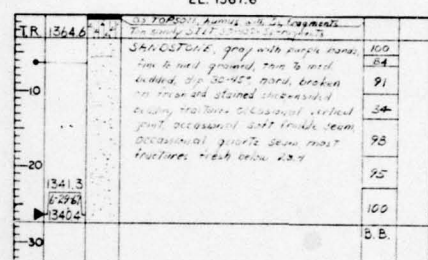 EL. 1367.6
T.R.
1364.6
0.5 TOPSOIL, humus with Ss fragments
Tan sandy SILT
SANDSTONE, gray with purple bands,
fine to med grained, thin to med
bedded, dip 30-45°, hard, broken
on fresh and stained slickensided
bedding fractures occasional vertical
joint, occasional soft friable seam,
occasional quartz seam, most
fractures fresh below 23.4
100
84
91
34
98
95
100
B.B.
10
20
30
1341.3
6-29-67
1340.4